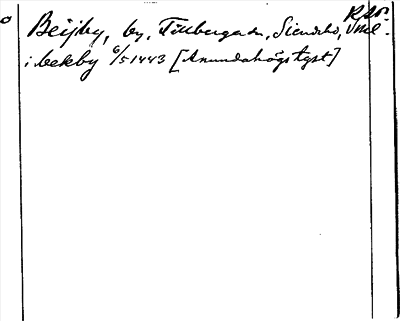 o
Rsv.
Beijby, by, Tillberga sn, Siendehd, Vstml.
i bekby 6/5 1443 [Anundahögstyst]